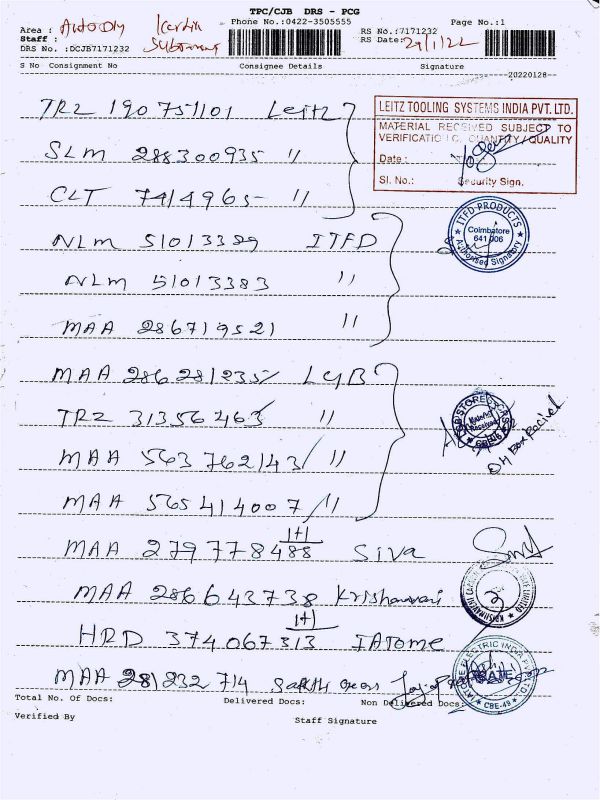 TPC/CJB DRS - PCG
Phone No.:0422-3505555 Page No.:1
Area : Auto Dly
Staff :
DRS No. :DCJB7171232
RS No.:7171232
RS Date: 29/1/22
S No Consignment No Consignee Details Signature
20220128
TRZ 190751101 Leitz
SLM 288300935 "
CLT 7414965 "
NLM 51013389 ITFD
NLM 51013383 "
MAA 286719521 "
MAA 286281235 LGB
TRZ 31356463 "
MAA 563762143 "
MAA 565414007 "
1+1
MAA 279778488 Siva
MAA 286643738 Krishnaveni
1+1
HRD 374067313 IATOME
MAA 281232714 Sakthi Gears
LEITZ TOOLING SYSTEMS INDIA PVT. LTD.
MATERIAL RECEIVED SUBJECT TO
VERIFICATION QUANTITY/QUALITY
Date :
Sl. No.: Security Sign.
ITFD PRODUCTS
Coimbatore
641 006
Authorised Signatory
Material
Received
OH Box Recived
ELECTRIC INDIA
CBE-49
Total No. of Docs: Delivered Docs: Non Delivered Docs:
Verified By Staff Signature